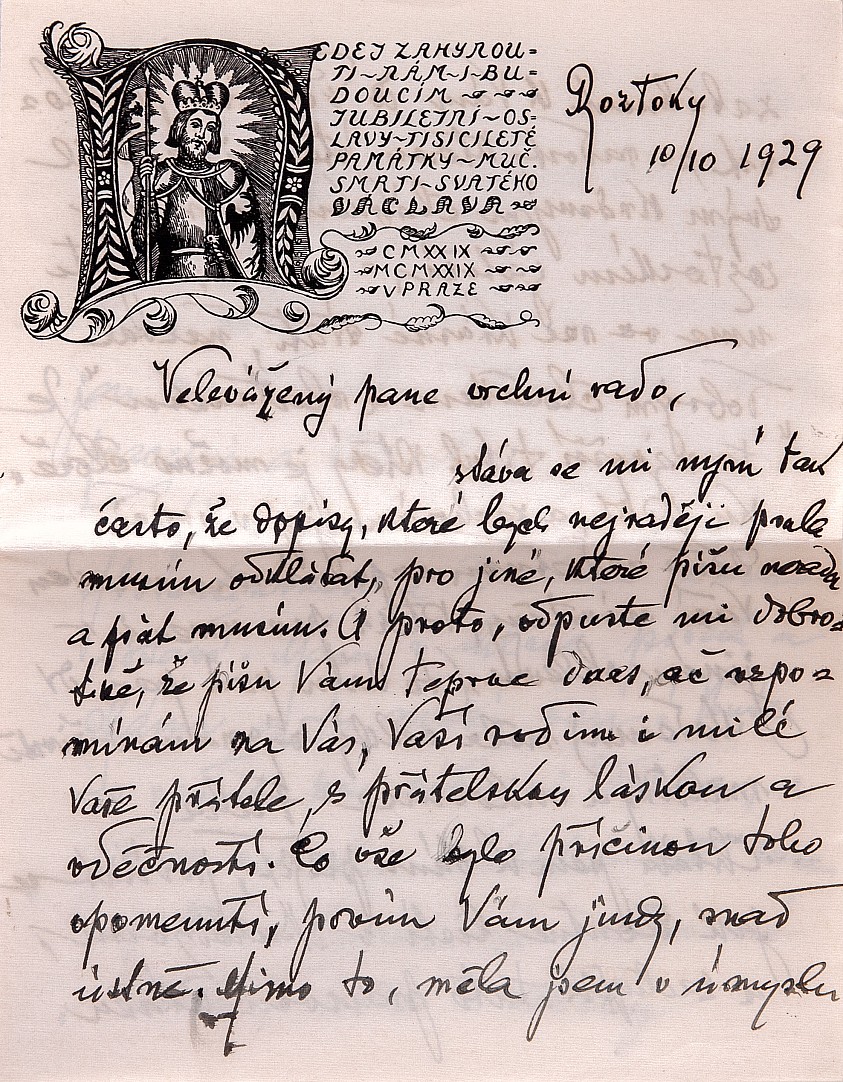 NEDEJ ZAHYNOU=
TI~NÁM~I~BU=
DOUCÍM
JUBILEJNÍ~OS=
LAVY~TISÍCILETÉ
PAMÁTKY~MUČ.
SMRTI~SVATÉHO
VÁCLAVA
CMXXIX
MCMXXIX
V PRAZE
Roztoky
10/10 1929
Velevážený pane vrchní rado,
stává se mi nyní tak
často, že dopisy, které bych nejraději psala
musím odkládat, pro jiné, které píšu nerada
a psát musím. A proto, odpusťte mi dobro=
tivě, že píšu Vám teprve dnes, ač vzpo=
mínám na Vás, Vaši rodinu i milé
Vaše přátele, s přátelskou láskou a
vděčností. Co vše bylo příčinou toho
opomenutí, povím Vám jindy, snad
ústně. Mimo to, měla jsem v úmyslu